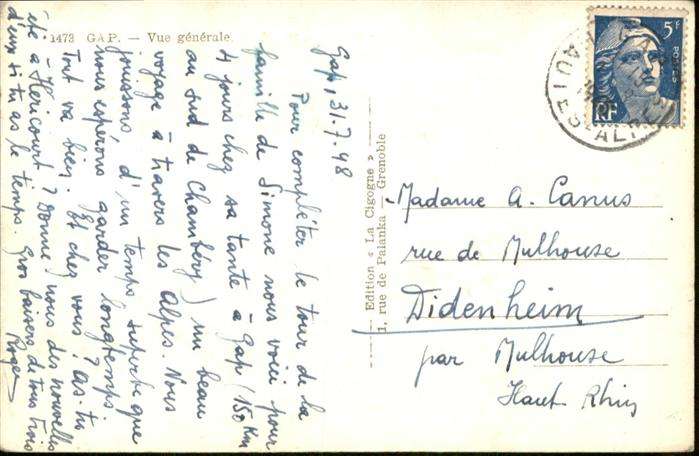 1473 GAP. — Vue générale.
Gap, 31.7.48
Pour compléter le tour de la
famille de Simone nous voici pour
4 jours chez sa tante à Gap (150 Km
au sud de Chambéry) un beau
voyage à travers les Alpes. Nous
jouissons, d'un temps superbe que
nous espérons garder longtemps.
Tout va bien. Et chez vous? As-tu
été à Héricourt? Donne nous des nouvelles
d'eux si tu as le temps. Gros baisers de tous trois
Roger
Edition « La Cigogne »
1, rue de Palanka — Grenoble
5F
POSTES
RF
HAUTES ALPES
Madame A. Canus
rue de Mulhouse
Didenheim
par Mulhouse
Haut Rhin